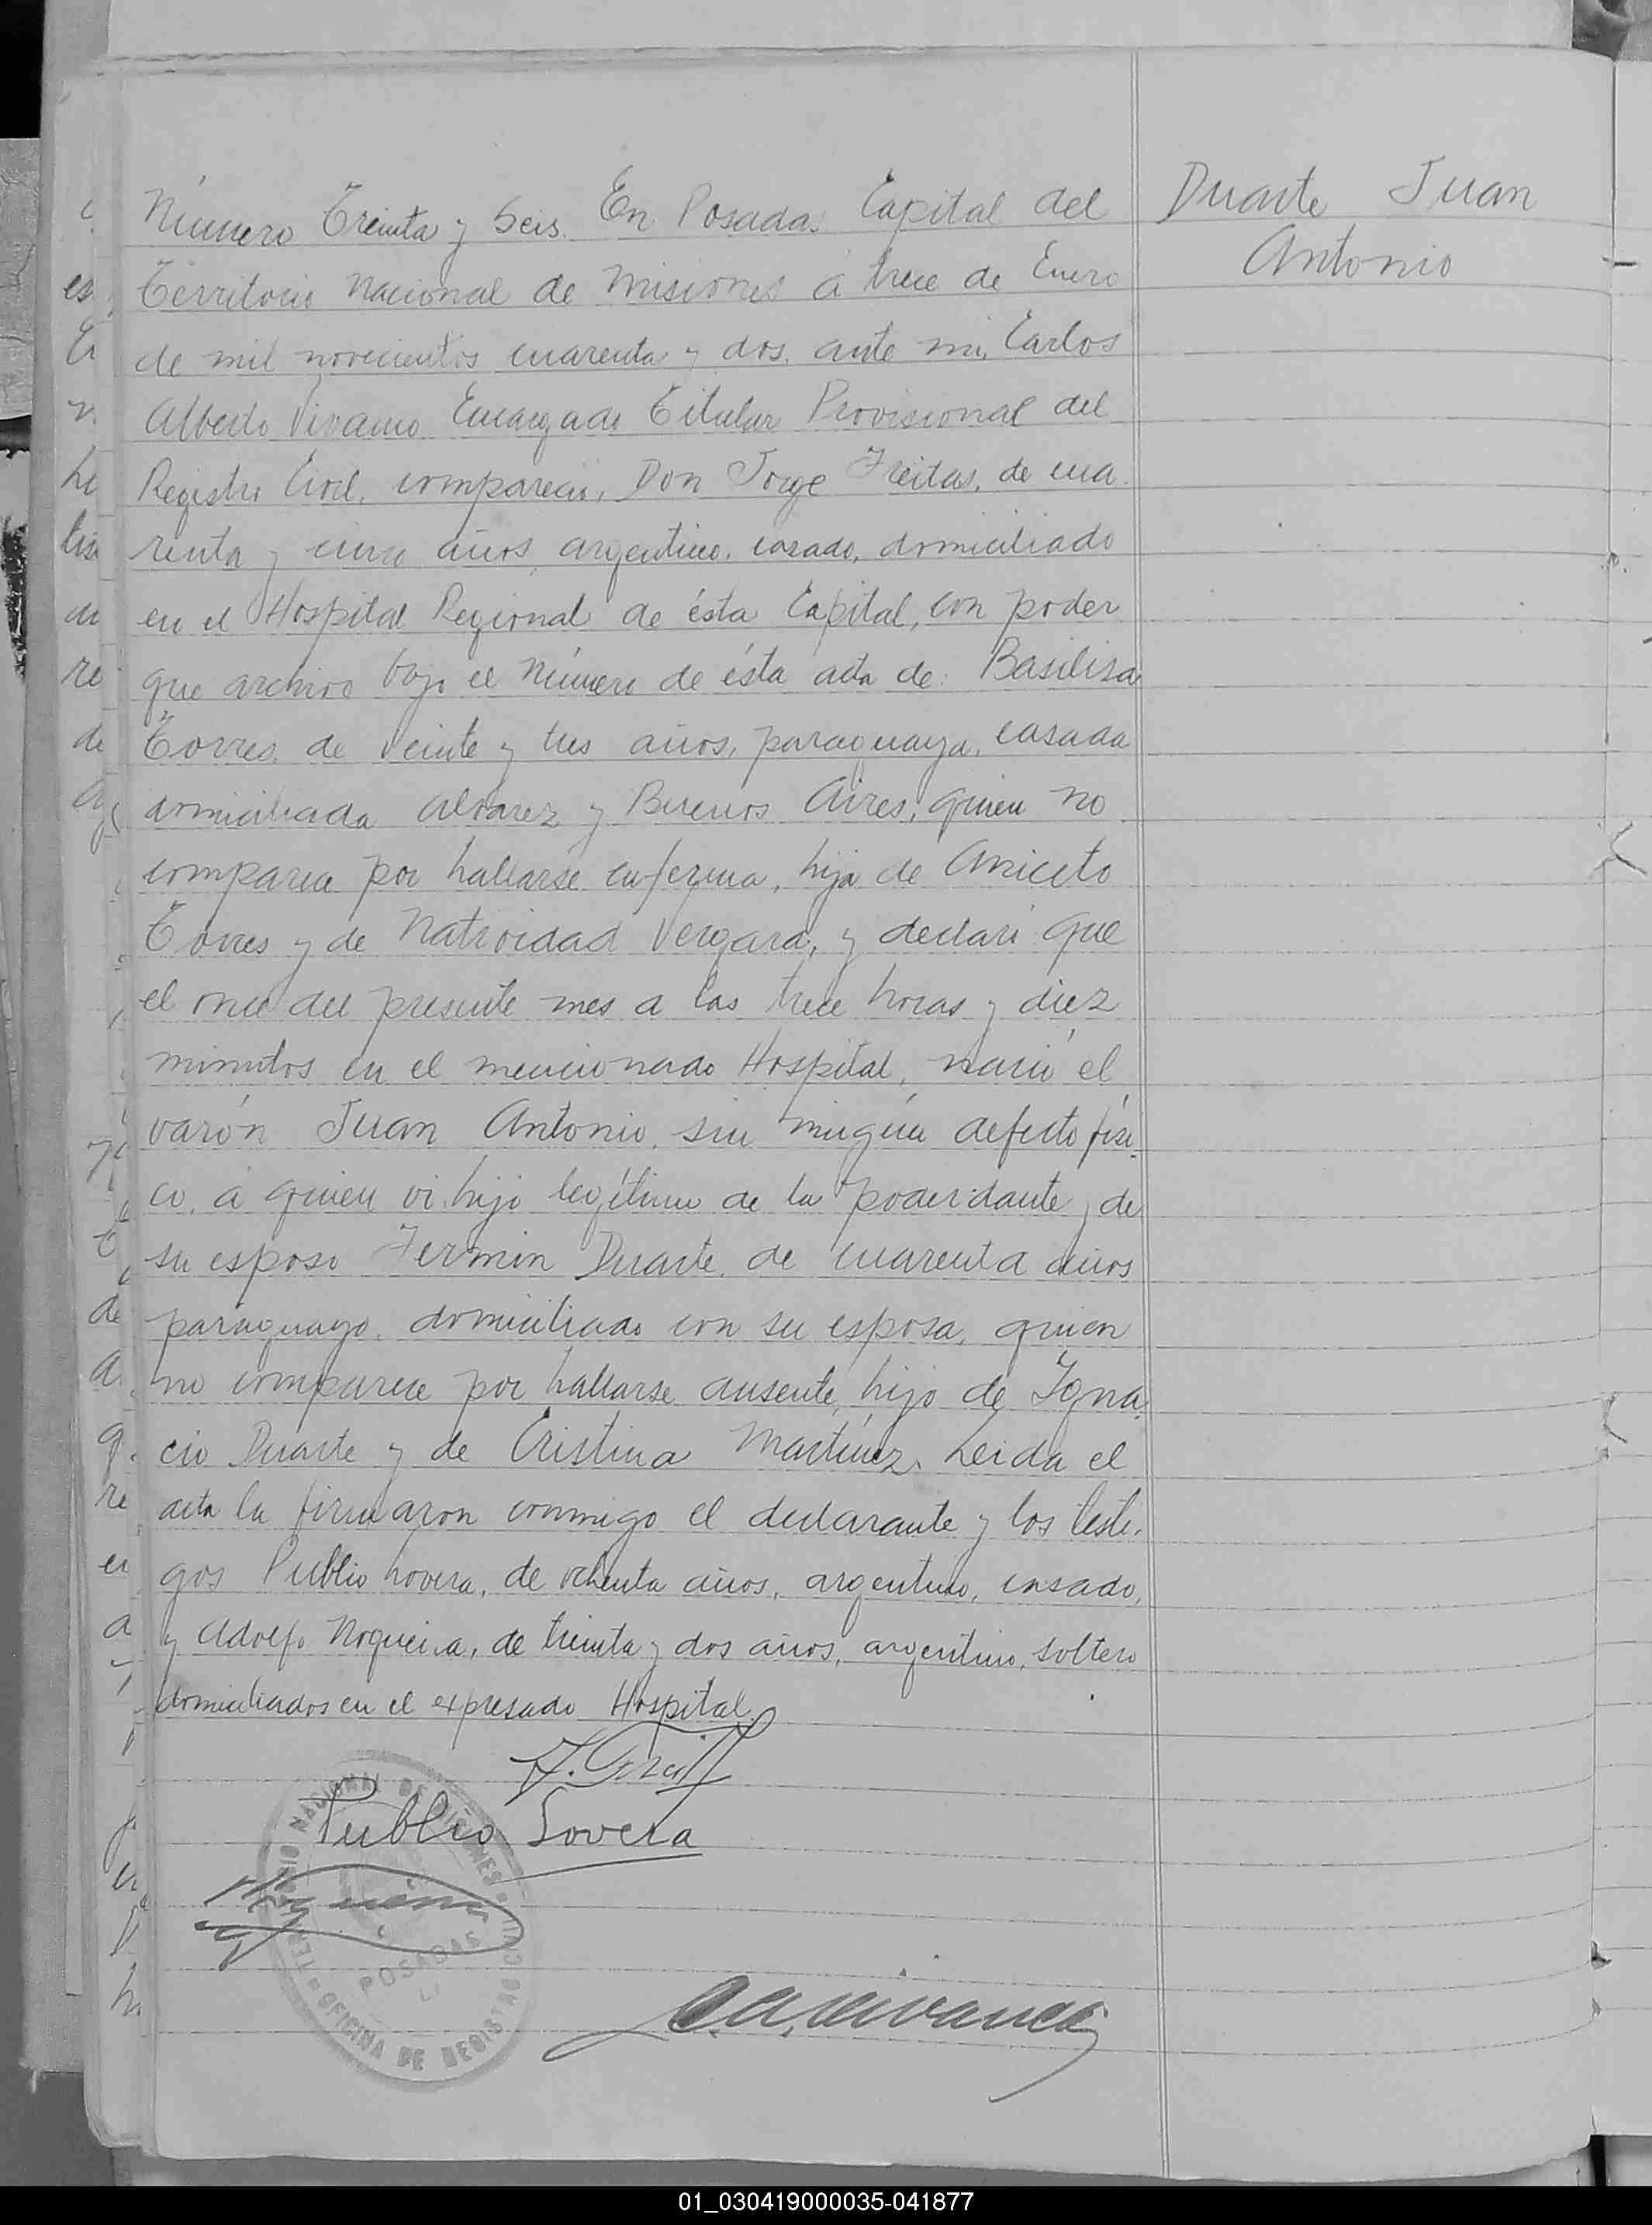 Duarte Juan
Antonio
Número Treinta y Seis. En Posadas Capital del
Territorio Nacional de Misiones á trece de Enero
de mil novecientos cuarenta y dos, ante mi, Carlos
Alberto Vivanco Encargado Titular Provisional del
Registro Civil, compareció, Don Jorge Freitas, de cua
renta y cinco años, argentino, casado, domiciliado
en el Hospital Regional de ésta Capital, con poder
que archivo bajo el Número de ésta acta de: Basilisa
Torres, de veinte y tres años, paraguaya, casada
domiciliada Alvarez y Buenos Aires, quien no
comparece por hallarse enferma, hija de Aniceto
Torres y de Natividad Vergara, y declaró que
el once del presente mes a las trece horas y diez
minutos en el mencionado Hospital, nació el
varón Juan Antonio, sin ningún defecto físi
co, á quien vi, hijo legítimo de la poderdante y de
su esposo Fermin Duarte, de cuarenta años
paraguayo, domiciliado con su esposa, quien
no comparece por hallarse ausente, hijo de Igna
cio Duarte y de Cristina Martínez. Leida el
acta la firmaron conmigo el declarante y los testi.
gos Publio Lovera, de ochenta años, argentino, casado,
y Adolfo Nogueira, de treinta y dos años, argentino, soltero
domiciliados en el expresado Hospital.
Publio Lovera
TERRITORIO NACIONAL DE MISIONES
POSADAS
OFICINA DE REGISTRO CIVIL
01_030419000035-041877